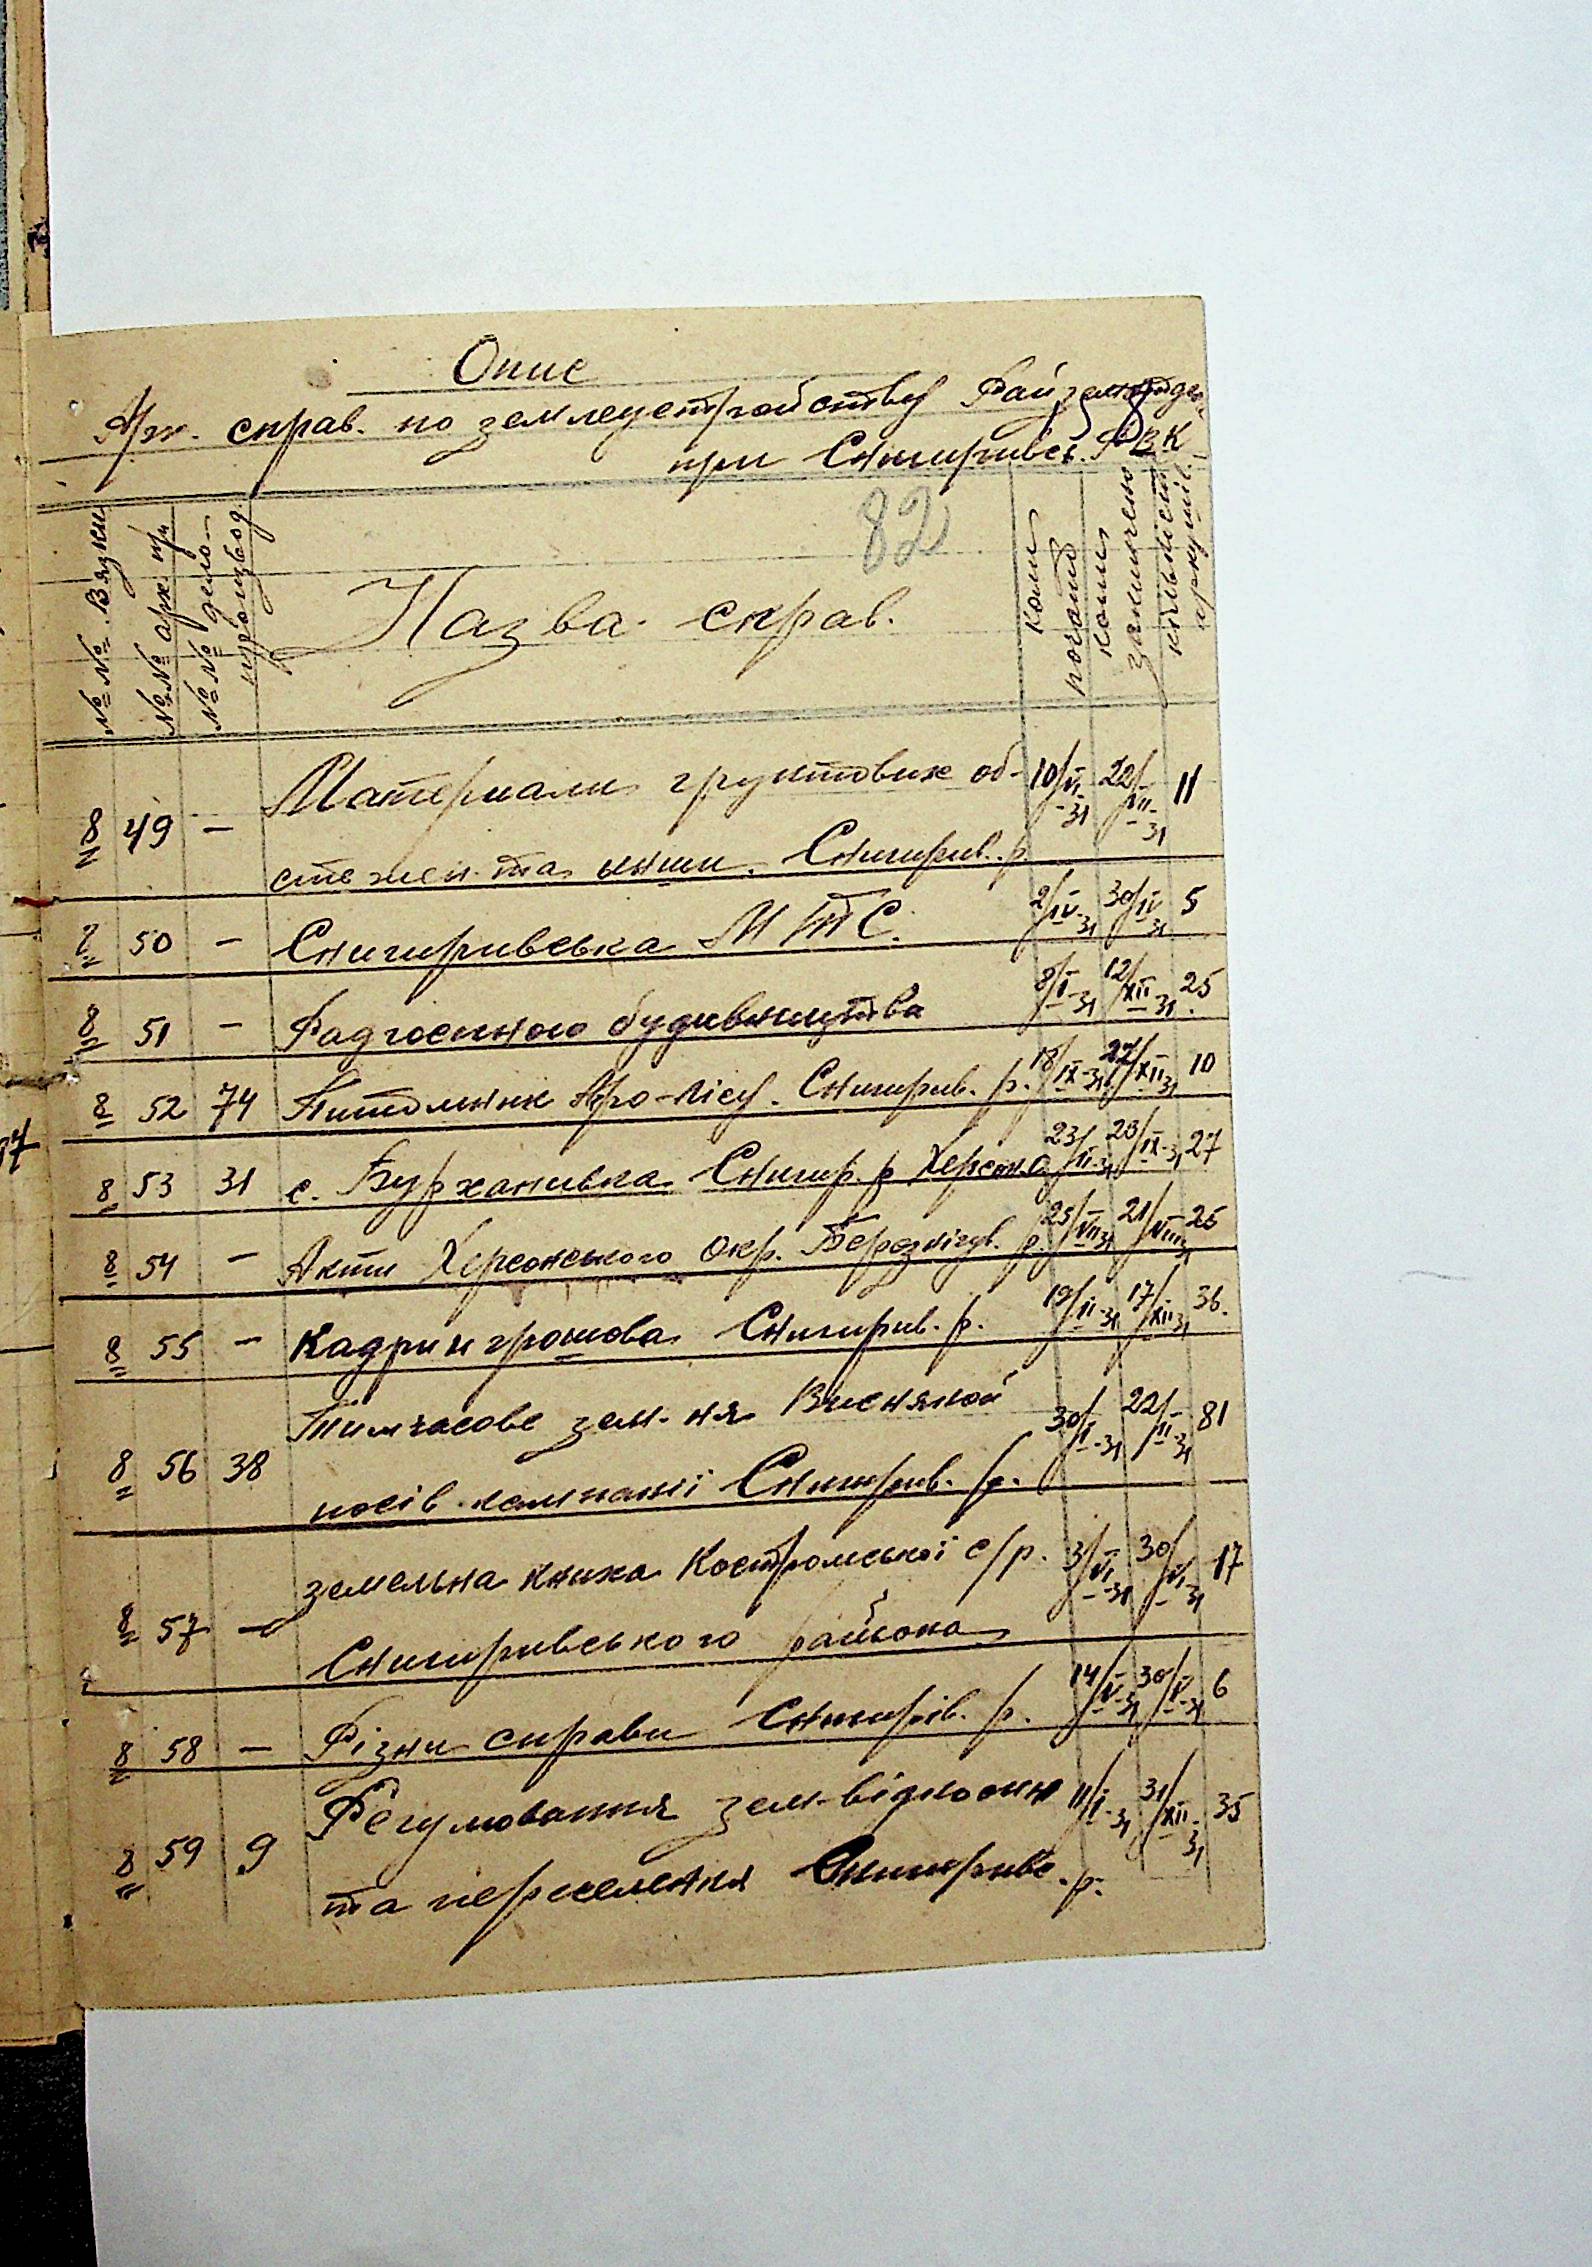 Опис
Арх. справ. по землеустройству Райземвідділ
при Снигирівсь. РВК
82
№№ Вязки
№№ арх. пр
№№ дело-
производ.
Назва справ.
коли
почато
коли
закінчено
кількість
аркушів
8 49 — Материали грунтових об- 10/VI-31 22/VII-31 11
стежен. та инши. Снигирив. р.
8 50 — Снигиривська МТС. 2/IV-31 30/IV-31 5
8 51 — Радгоспного будивництва 8/I-31 12/XII-31 25
8 52 74 Питомник Агро-лісу. Снигирив. р. 18/IX-31 27/XII-31 10
8 53 31 с. Бурханивка Снигир. р Херсона 23/II-31 20/IX-31 27
8 54 — Акти Херсонського Окр. Березнігув. р. 25/VII-31 21/VIII-31 25
8 55 — Кадри и грошова Снигирив. р. 19/II-31 17/XII-31 36.
8 56 38 Тимчасове зем-ня Висняной 30/I-31 22/II-31 81
посів кампанії Снигирив. р.
8 57 — земельна книга Костромської с/р. 3/VI-31 30/VI-31 17
Снигиривського района
8 58 — Різни справи Снигирів. р. 14/V-31 30/V-31 6
8 59 9 Регулювання зем-відносин 11/I-31 31/XII-31 35
та переселення Снигиривс. р.